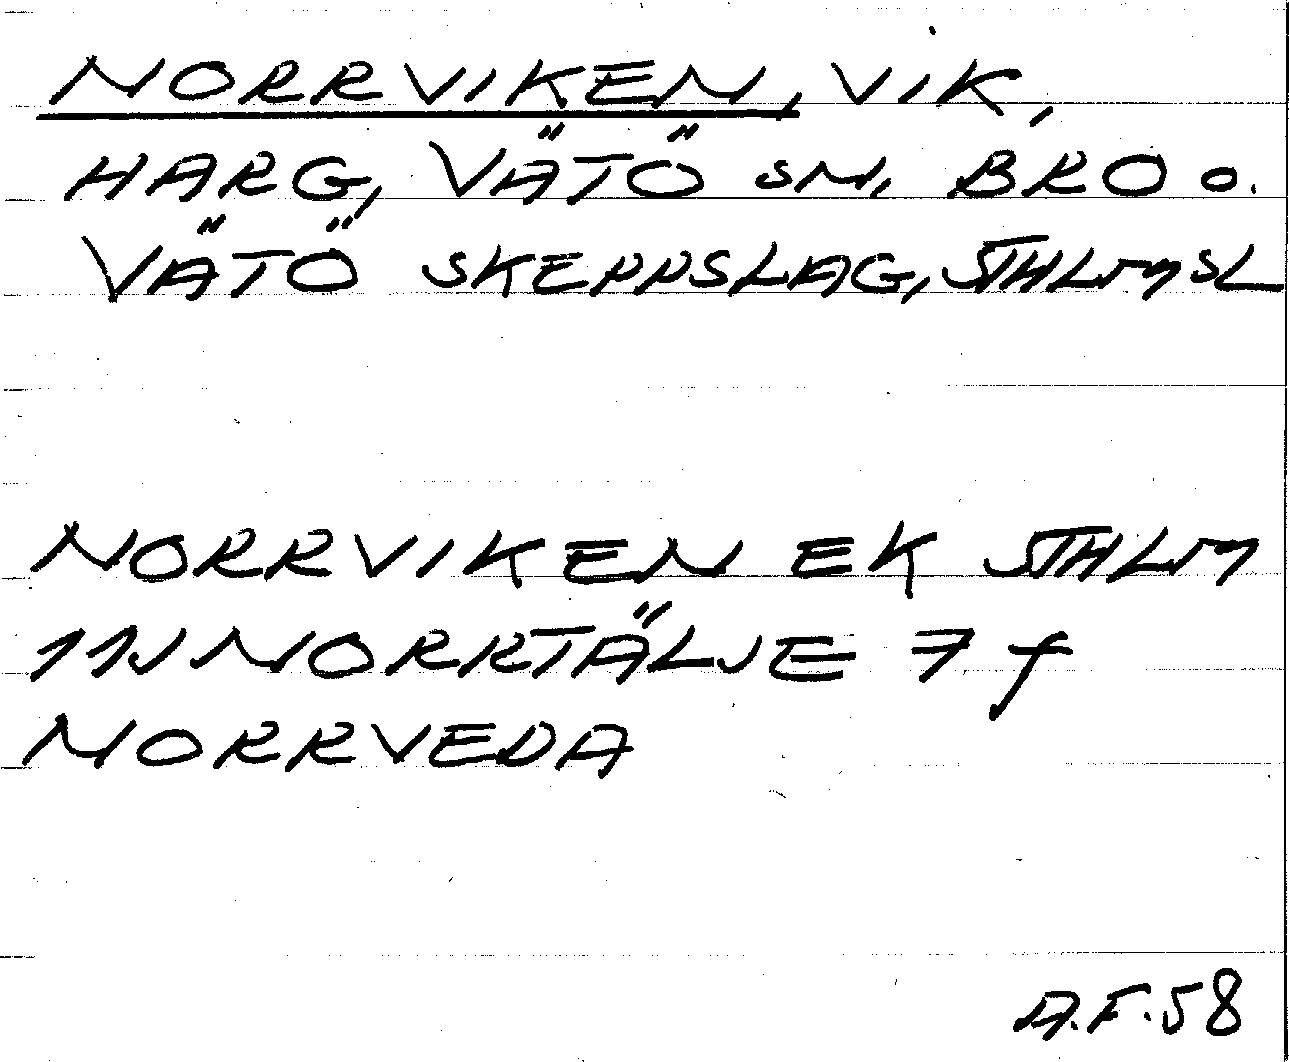 NORRVIKEN, VIK,
HARG, VÄTÖ SN, BRO O.
VÄTÖ SKEPPSLAG, STHLMSL
NORRVIKEN EK STHLM
11J NORRTÄLJE 7 f
NORRVEDA
A.F.58